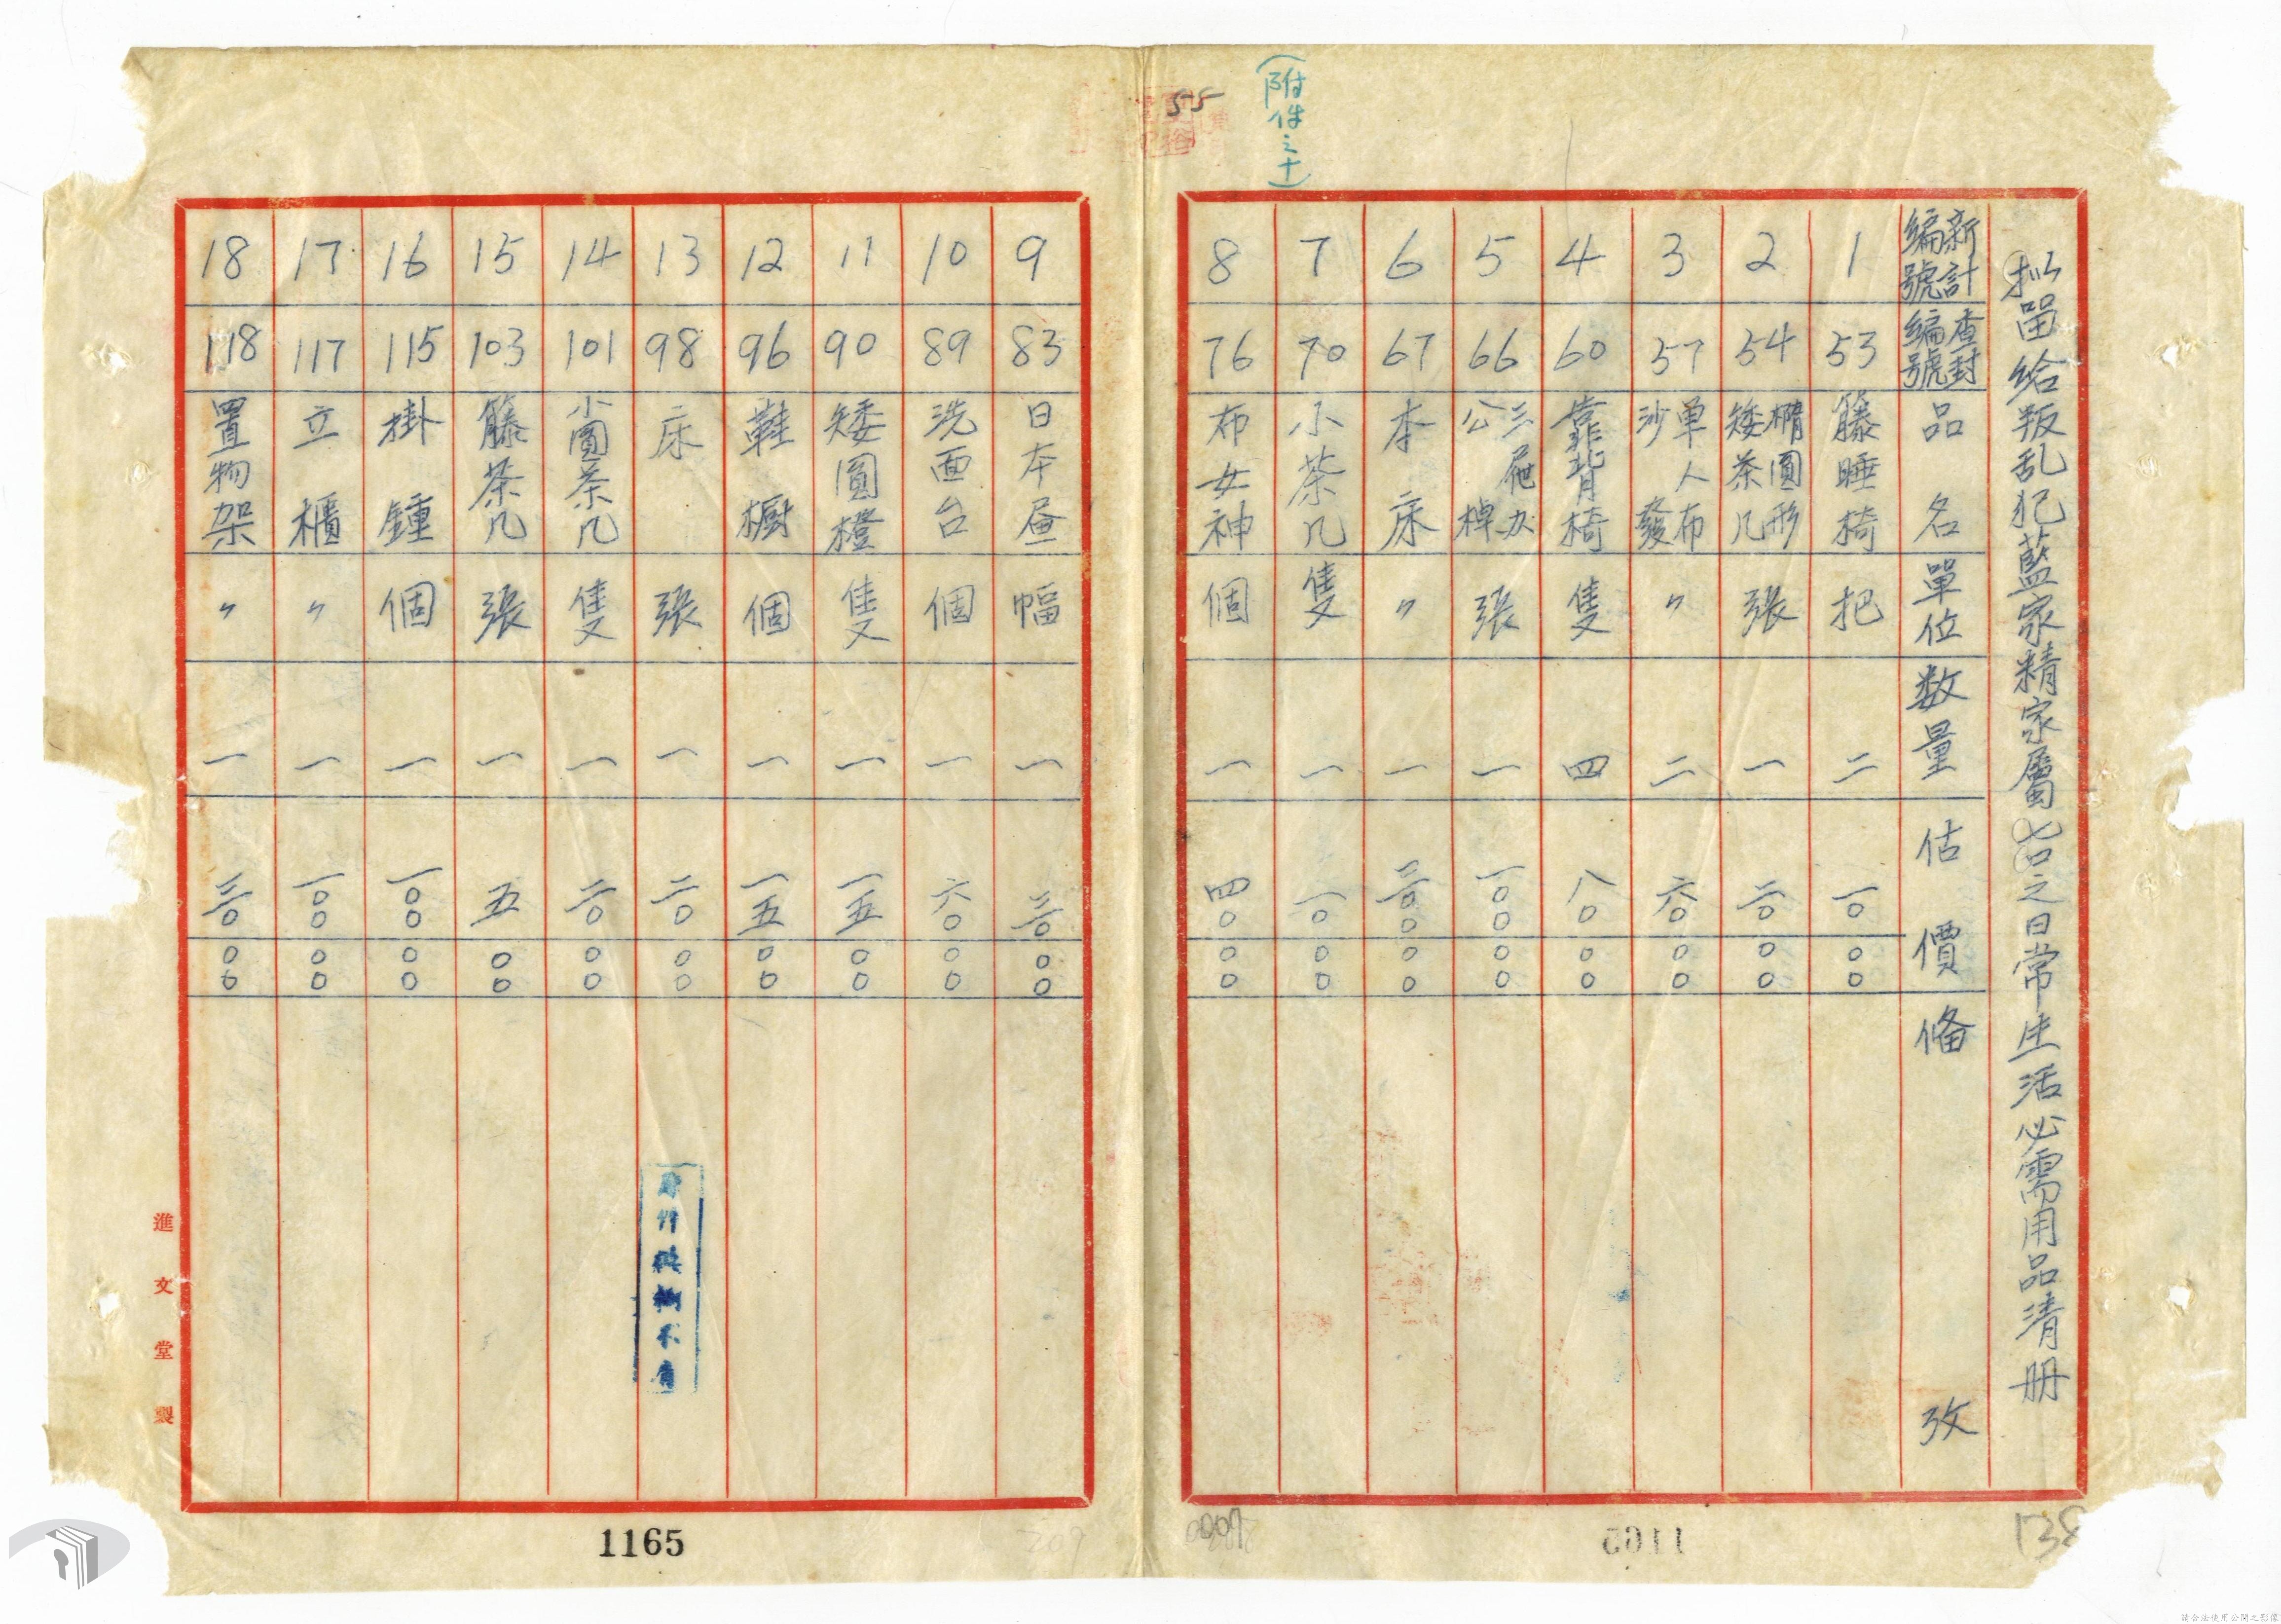 (附件之十)
55
拟留给叛乱犯藍家精家屬七口之日常生活必需用品清册
新計編號 查封編號 品名 單位 数量 估價 俻攷
1 53 籐睡椅 把 二 一〇 〇〇
2 54 橢圓形矮茶几 張 一 二〇 〇〇
3 57 单人布沙發 〃 二 六〇 〇〇
4 60 靠背椅 隻 四 八〇 〇〇
5 66 三屉办公棹 張 一 一〇〇 〇〇
6 67 本床 〃 一 三〇〇 〇〇
7 70 小茶几 隻 一 一〇 〇〇
8 76 布女神 個 一 四〇 〇〇
9 83 日本畫 幅 一 三〇 〇〇
10 89 洗面台 個 一 六〇 〇〇
11 90 矮圓橙 隻 一 一五 〇〇
12 96 鞋櫥 個 一 一五 〇〇
13 98 床 張 一 二〇 〇〇
14 101 小圓茶几 隻 一 二〇 〇〇
15 103 籐茶几 張 一 五 〇〇
16 115 掛鍾 個 一 一〇〇 〇〇
17 117 立櫃 〃 一 一〇〇 〇〇
18 118 置物架 〃 一 三〇 〇〇
進文堂製
1165
209
138
請合法使用公開之影像